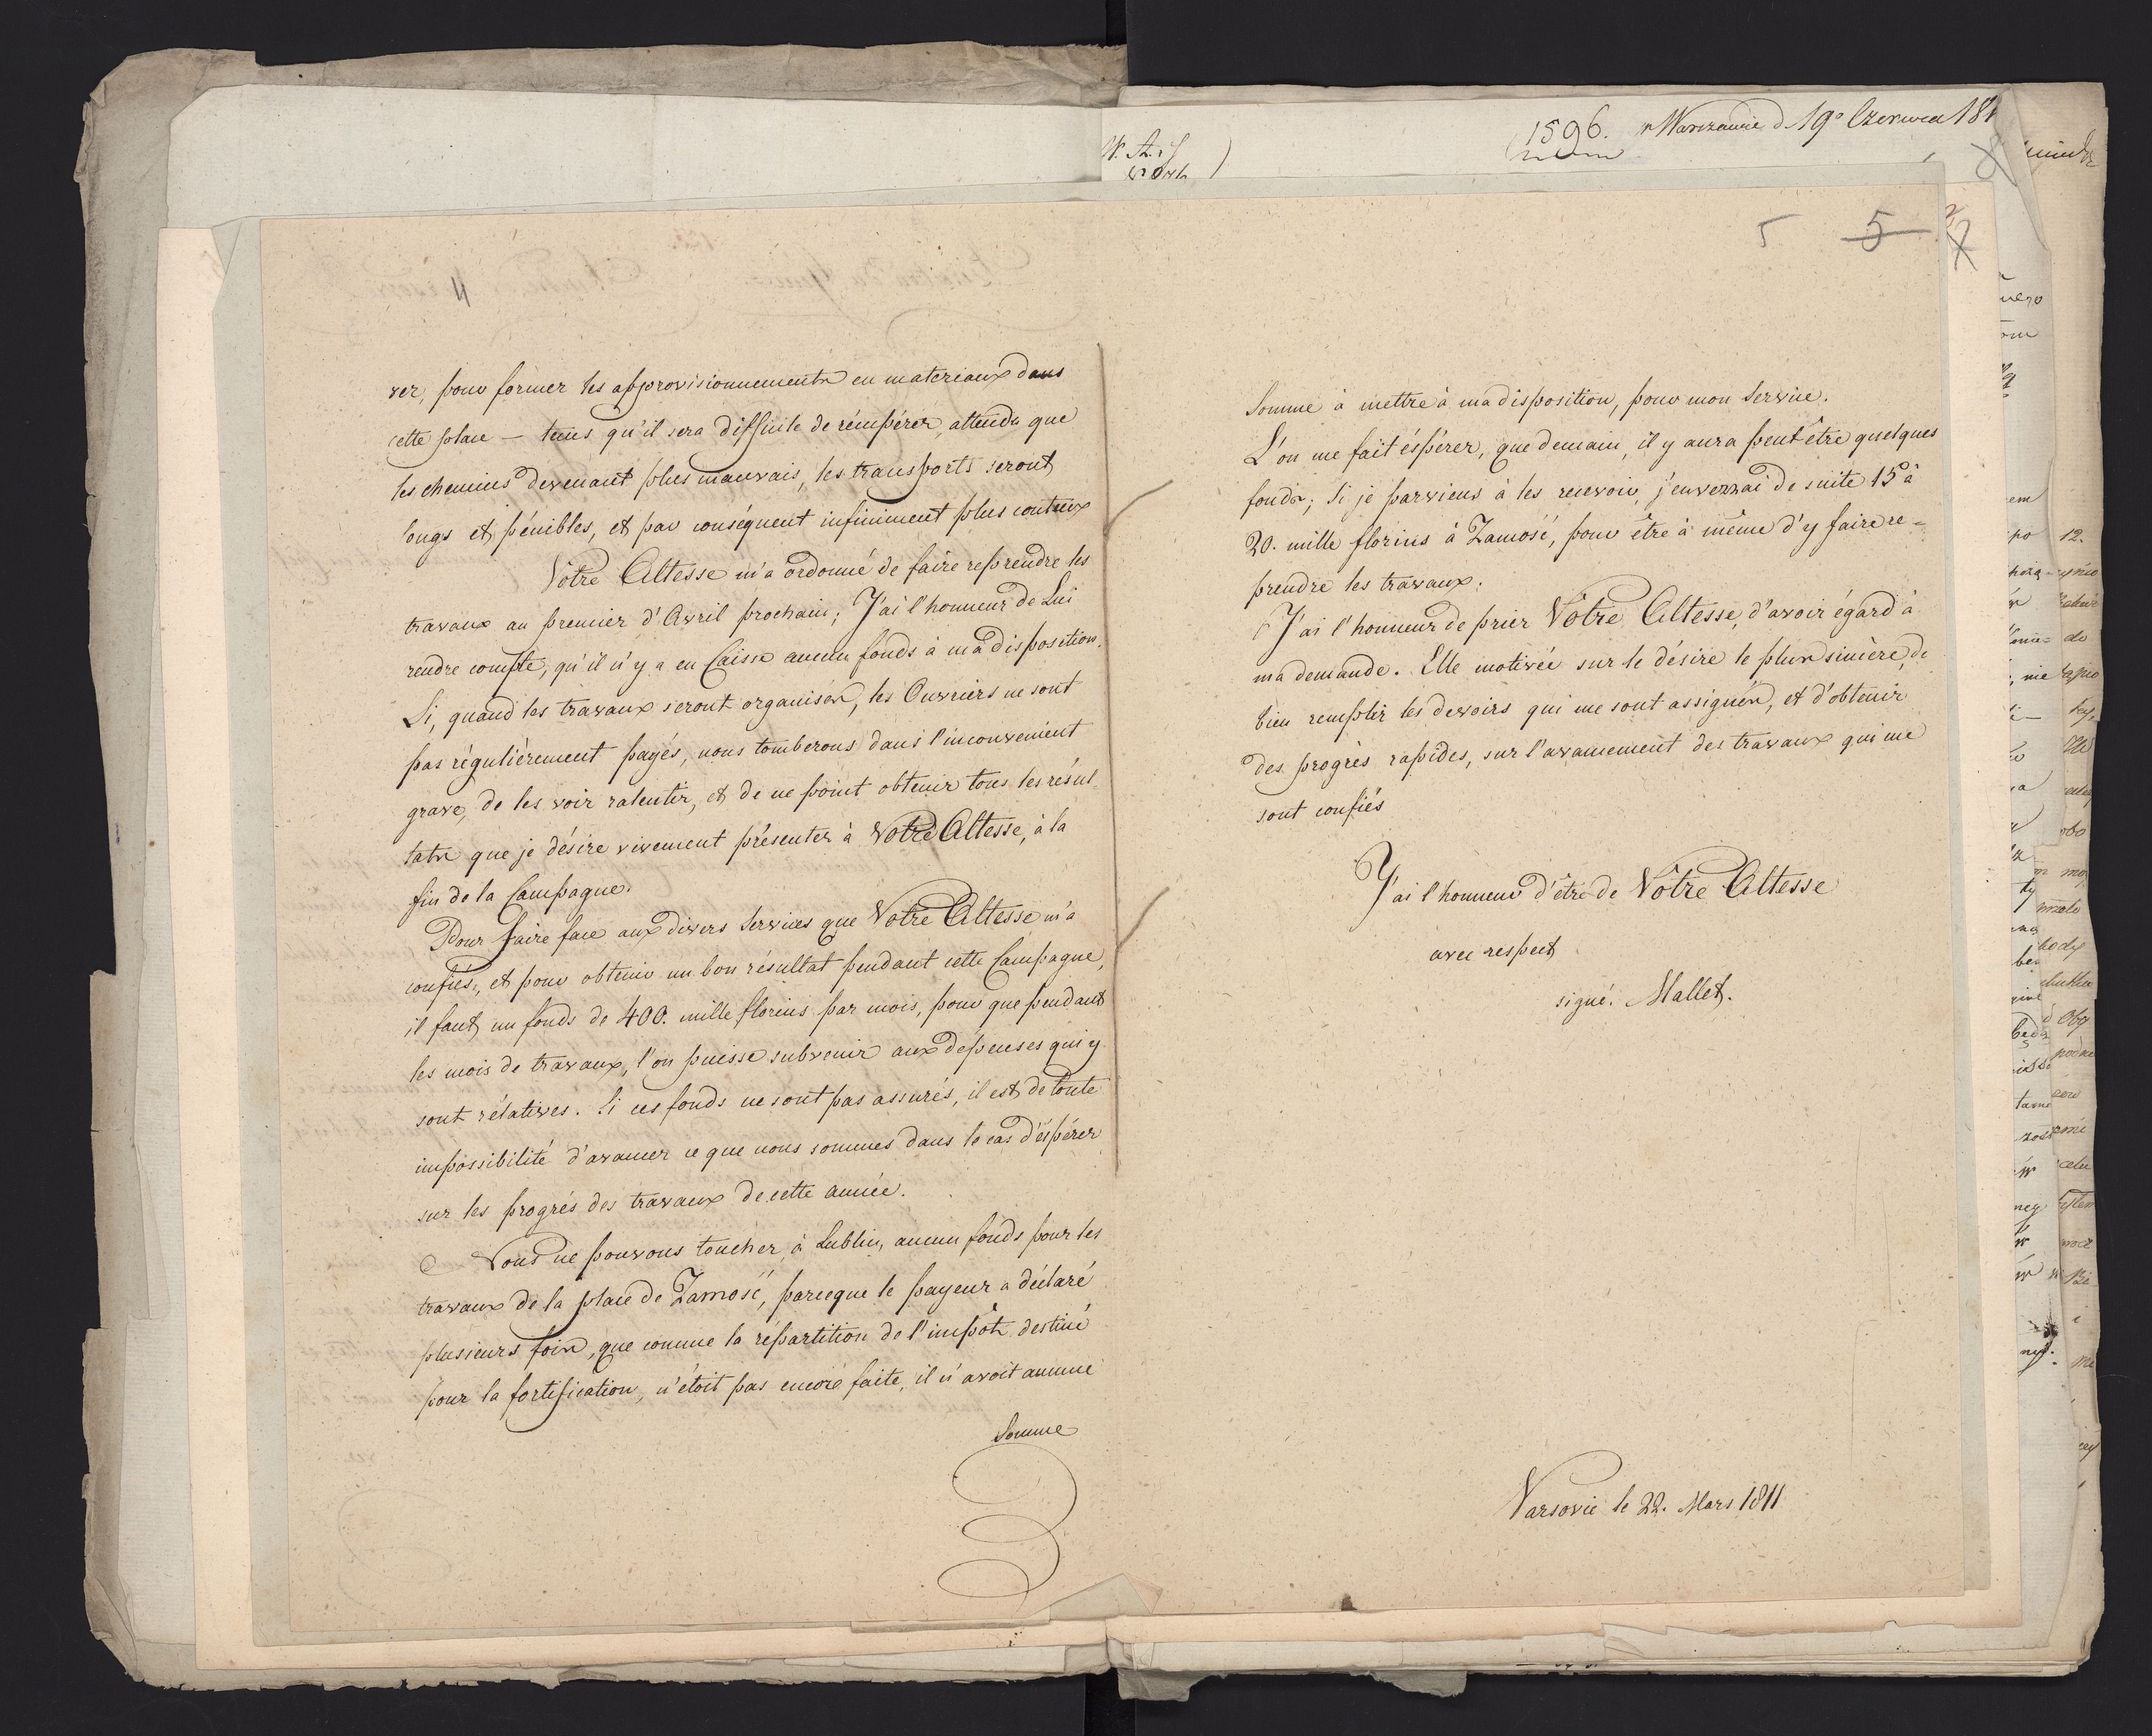 1596. Warszawie d. 19º Czerwca 181
5 5
4
ver, pour former les approvisionnements en materiaux dans
cette place — tems qu'il sera difficile de récupérer, attendu que
les chemins devenant plus mauvais, les transports seront
longs et pénibles, et par conséquent infiniment plus couteux
Vôtre Altesse m'a ordonné de faire reprendre les
travaux au premier d'Avril prochain; J'ai l'honneur de Lui
rendre compte, qu'il n'y a en Caisse aucun fonds à ma disposition.
Si, quand les travaux seront organisés, les Ouvriers ne sont
pas régulièrement payés, nous tomberons dans l'inconvenient
grave, de les voir ralentir, et de ne point obtenir tous les résul
tats que je désire vivement présenter à Votre Altesse, à la
fin de la Campagne.
Pour faire face aux divers Services que Votre Altesse m'a
confiés, et pour obtenir un bon résultat pendant cette Campagne,
il faut un fonds de 400. mille florins par mois, pour que pendant
les mois de travaux, l'on puisse subvenir aux dépenses qui y
sont rélatives. Si ces fonds ne sont pas assurés, il est de toute
impossibilité d'avancer ce que nous sommes dans le cas d'éspérer
sur les progrés des travaux de cette année.
Nous ne pouvons toucher, à Lublin, aucun fonds pour les
travaux de la place de Zamość, parceque le payeur a déclaré
plusieurs fois, que comme la répartition de l'impôt destiné
pour la fortification, n'étoit pas encore faite, il n'avoit aucune
Somme
Somme à mettre à ma disposition, pour mon Service.
L'on me fait éspérer, que demain, il y aura peut être quelques
fonds; Si je parviens à les recevoir, j'enverrai de suite 15 à
20. mille florins à Zamość, pour être à même d'y faire re=
prendre les travaux.
J'ai l'honneur de prier Vôtre Altesse, d'avoir égard à
ma demande. Elle motivée sur le désire le plus sincère, de
bien remplir les devoirs qui me sont assignés, et d'obtenir
des progrès rapides, sur l'avancement des travaux qui me
sont confiés
J'ai l'honneur d'être de Vôtre Altesse
avec respect
signé. Mallet.
Varsovie le 22. Mars 1811